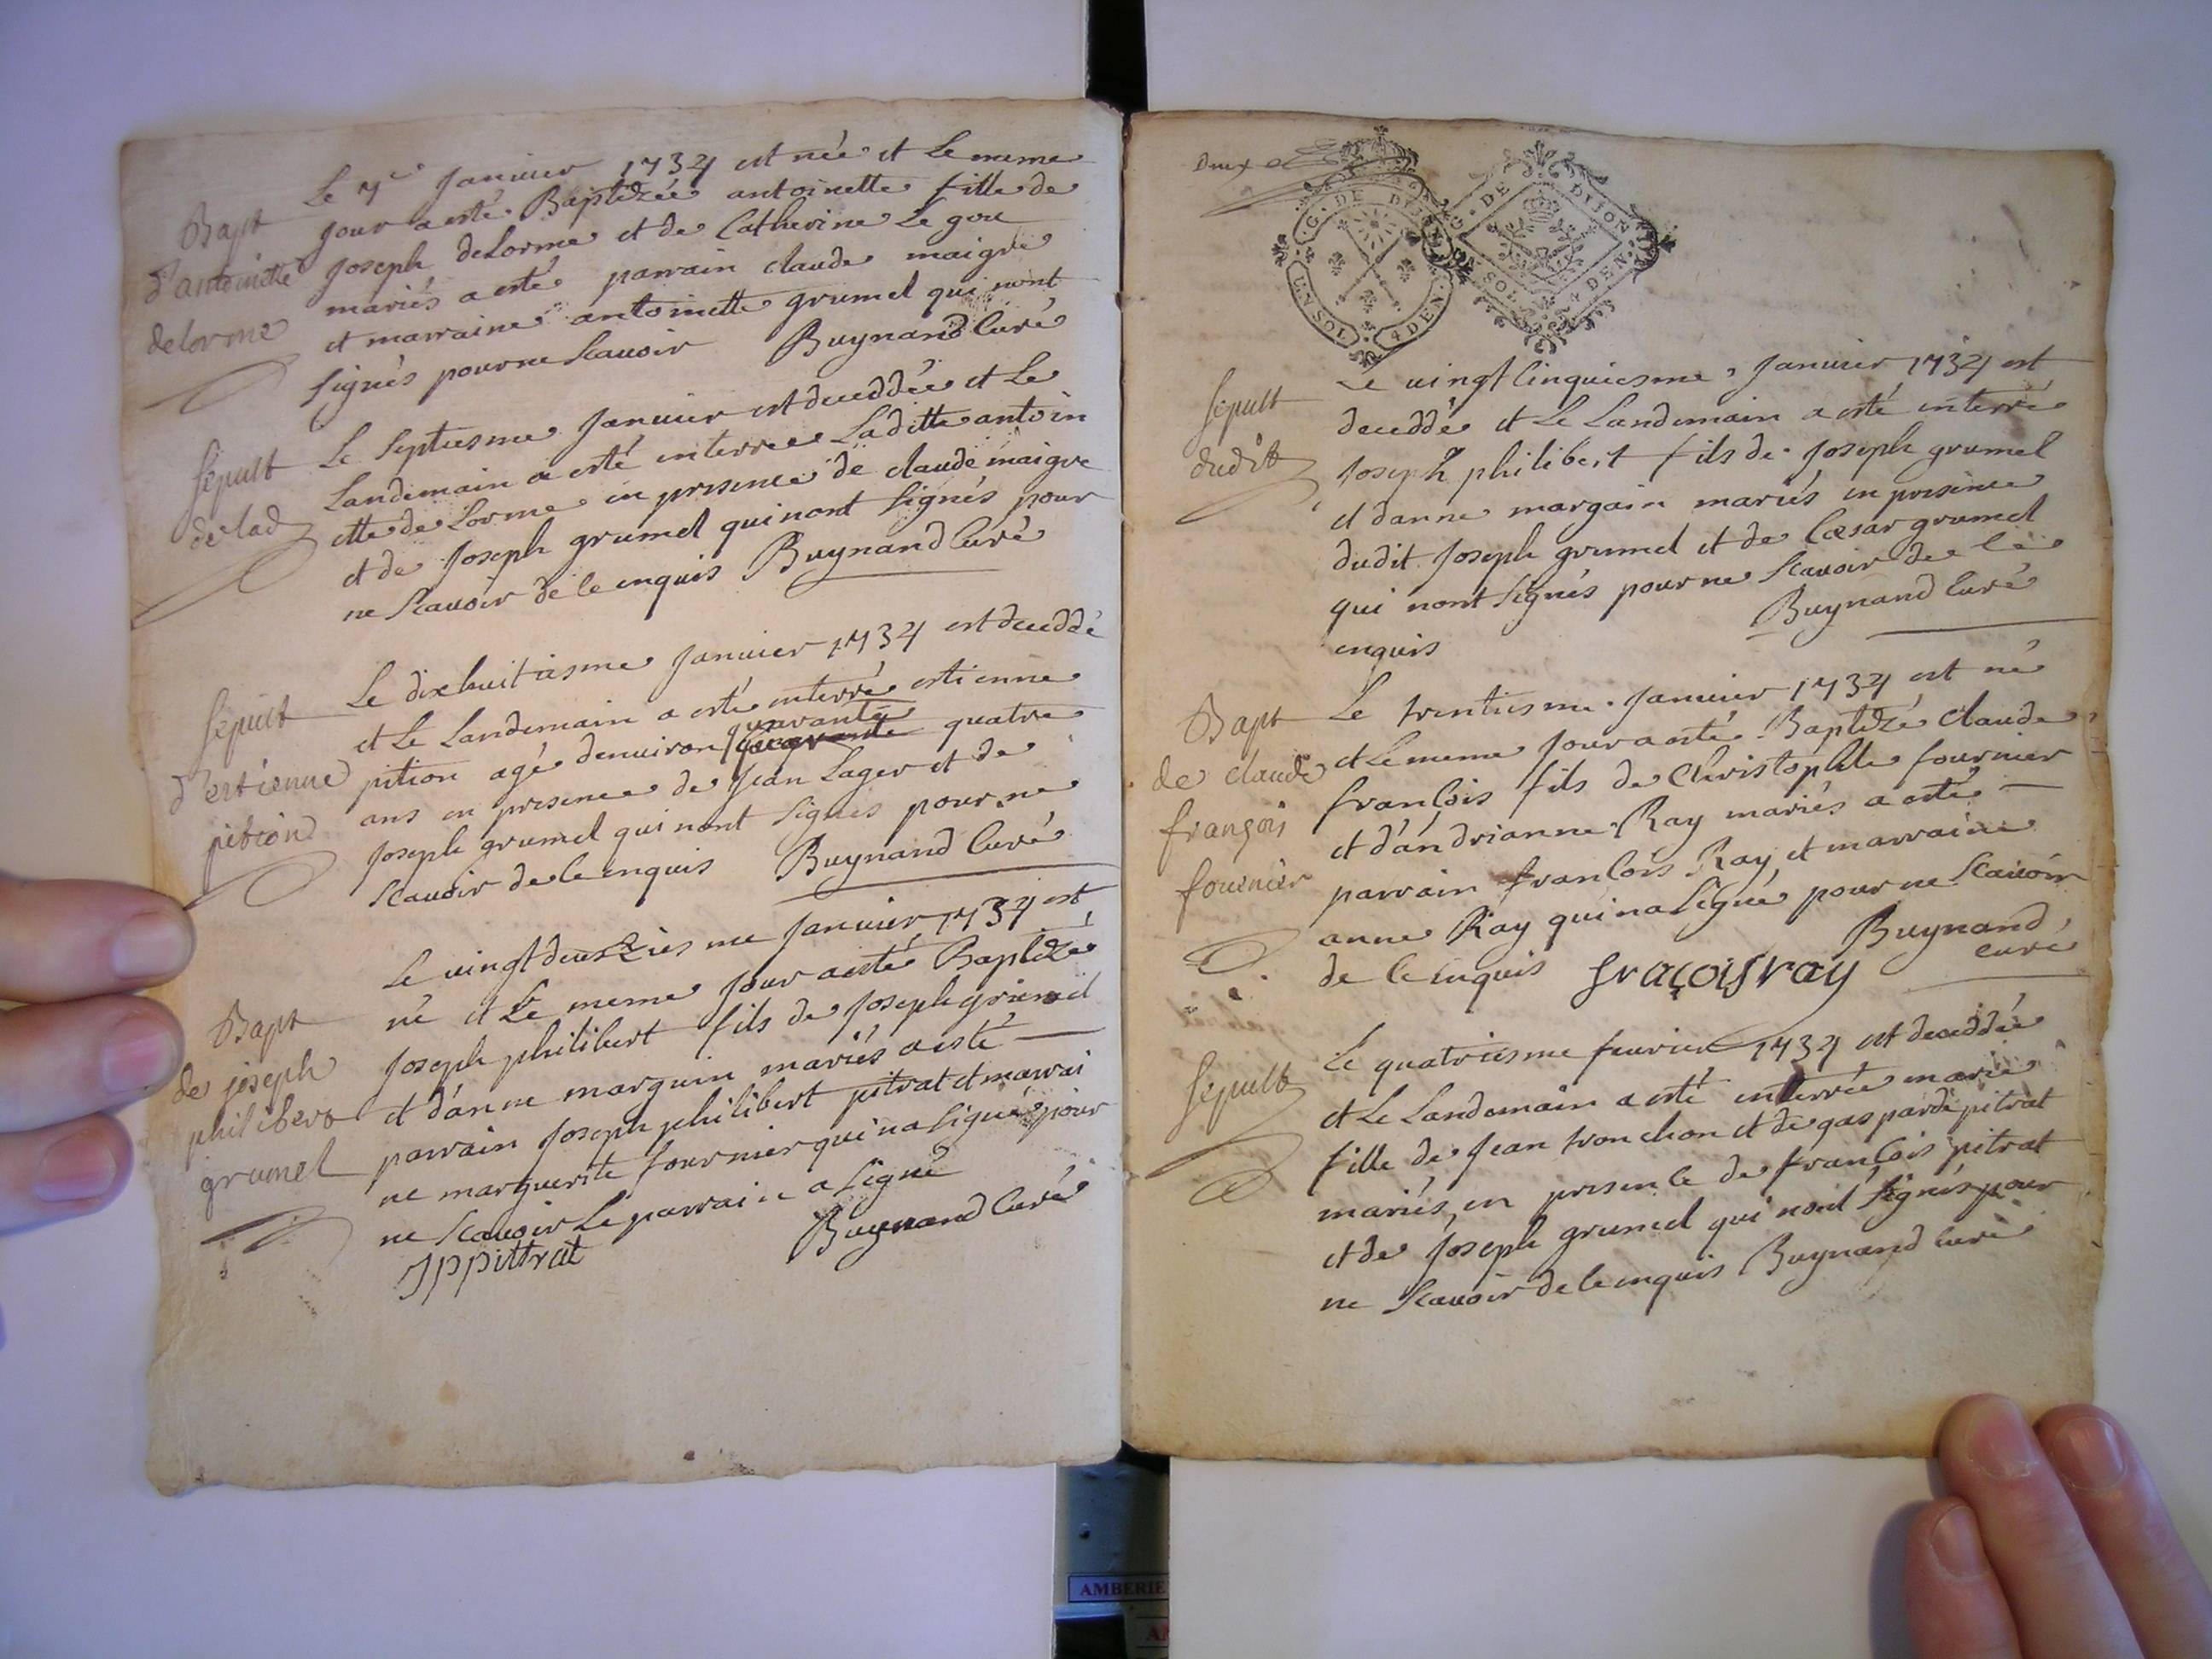 Bapt
d'antoinette
delorme
Le 7e Janvier 1734 est née et Le meme
Jour a esté Baptizée antoinette fille de
Joseph deLorme et de Catherine Le gou
mariés a esté parrain claude maigre
et marraine antoinette grumel qui nont
signés pour ne scauoir Buynand Curé
sepult
de lad
Le septiesme Januier est deceddée et Le
Landemain a esté interree Laditte antoin
ette de Lorme en presence de claude maigre
et de Joseph grumel qui nont signés pour
ne scauoir de ce enquis Buynand Curé
sepult
d'estienne
pition
Le dixhuitiesme Januier 1734 est deceddé
et Le Landemain a esté interré estienne
quarante
pition agé denuiron quatre
ans en presence de Jean Lager et de
Joseph grumel qui nont signés pour ne
scauoir de ce enquis Buynand Curé
Bapt
de joseph
philibert
grumel
Le vingtdeuxziesme Januier 1734 est
né et Le meme Jour a esté Baptizé
Joseph philibert fils de Joseph grumel
et d'anne marguin mariés a esté
parrain Joseph philibert pitrat et marrai
ne marguerite fournier qui na signé pour
ne scauoir Le parrain a signé
Jppittrat Buynand Curé
Deux
G. DE DIJON
UN SOL 4 DEN.
G. DE DIJON
UN SOL 4 DEN.
sepult
dudit
Le vingt cinquiesme Januier 1734 est
deceddé et Le Landemain a esté interré
Joseph philibert fils de Joseph grumel
et danne margain mariés en presence
dudit Joseph grumel et de Cæsar grumel
qui nont signés pour ne scauoir de ce
enquis Buynand Curé
Bapt
de claude
françois
fournier
Le trentiesme Januier 1734 est né
et Le meme Jour a esté Baptizé claude
françois fils de Christophle fournier
et d'andrianne Ray mariés a esté
parrain francois Ray et marraine
anne Ray qui na signé pour ne scauoir
de ce enquis fraçois ray Buynand
curé
sepult
Le quatriesme feurier 1734 est deceddée
et Le Landemain a esté interrée marie
fille de Jean tronchon et de gasparde pitrat
mariés en presence de françois pitrat
et de Joseph grumel qui nont signés pour
ne scauoir de ce enquis Buynand curé
AMBERIE